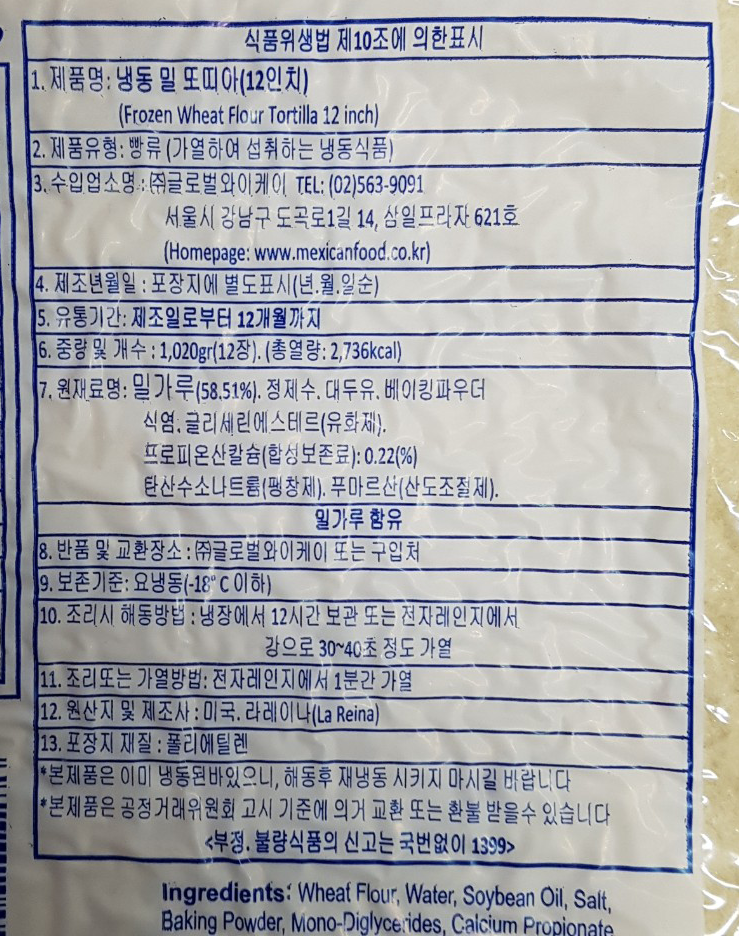 식품위생법 제10조에 의한표시
1. 제품명: 냉동 밀 또띠아(12인치)
(Frozen Wheat Flour Tortilla 12 inch)
2. 제품유형: 빵류 (가열하여 섭취하는 냉동식품)
3. 수입업소명 : ㈜글로벌와이케이 TEL: (02)563-9091
서울시 강남구 도곡로1길 14, 삼일프라자 621호
(Homepage: www.mexicanfood.co.kr)
4. 제조년월일 : 포장지에 별도표시(년.월.일순)
5. 유통기간: 제조일로부터 12개월까지
6. 중량 및 개수 : 1,020gr(12장). (총열량: 2,736kcal)
7. 원재료명: 밀가루(58.51%). 정제수. 대두유. 베이킹파우더
식염. 글리세린에스테르(유화제).
프로피온산칼슘(합성보존료): 0.22(%)
탄산수소나트륨(팽창제). 푸마르산(산도조절제).
밀가루 함유
8. 반품 및 교환장소 : ㈜글로벌와이케이 또는 구입처
9. 보존기준: 요냉동(-18° C 이하)
10. 조리시 해동방법 : 냉장에서 12시간 보관 또는 전자레인지에서
강으로 30~40초 정도 가열
11. 조리또는 가열방법: 전자레인지에서 1분간 가열
12. 원산지 및 제조사 : 미국. 라레이나(La Reina)
13. 포장지 재질 : 폴리에틸렌
*본제품은 이미 냉동된바있으니, 해동후 재냉동 시키지 마시길 바랍니다
*본제품은 공정거래위원회 고시 기준에 의거 교환 또는 환불 받을수 있습니다
<부정. 불량식품의 신고는 국번없이 1399>
Ingredients: Wheat Flour, Water, Soybean Oil, Salt,
Baking Powder, Mono-Diglycerides, Calcium Propionate